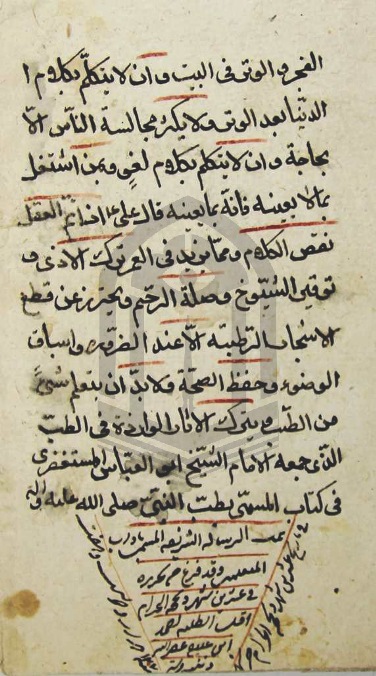 الفجر و الوتر فى البيت و ان لا يتكلم بكلام ا
الدنيا بعد الوتر و لا يكثر مجالسة الناس الا
بحاجة و ان لا يتكلم بكلام لغو و من اشتغل
بما لا يعنيه فاته ما يعنيه قال على ع اذا تم العقل
نقص الكلام و مما يزيد فى العمر ترك الاذى و
توقير الشيوخ و صلة الرحم و يحترز عن قطع
الاشجار الرطبة الا عند الضرورة و اسباغ
الوضوء و حفظ الصحة و لا بد ان يتعلم شيئا
من الطب و يتبرك الاثار الواردة فى الطب
الذى جمعه الامام الشيخ ابو العباس المستغفرى
فى كتاب المسمى بطب النبى صلى الله عليه و اله
تمت الرسالة الشريفة المسمى باداب
المتعلمين و قد فرغ من تحريره
فى شهر ذى حجة الحرام
اقل الطلبة